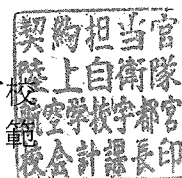 契約担当官
陸上自衛隊
航空学校宇都宮
校会計課長印
校
範